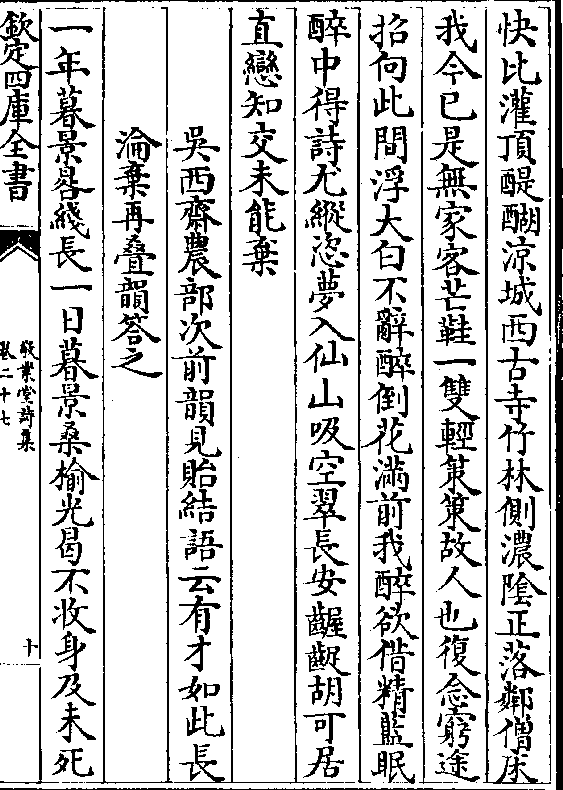 快比灌頂醍醐凉城西古寺竹林側濃陰正落鄰僧床
我今已是無家客芒鞋一雙輕策策故人也復念窮途
招向此間浮大白不辭醉倒花滿前我醉欲借精藍眠
醉中得詩尤縱恣夢入仙山吸空翠長安齷齪胡可居
直戀知交未能棄
吳西齋農部次前韻見貽結語云有才如此長
淪棄再疊韻答之
一年暮景晷綫長一日暮景桑榆光曷不收身及未死
欽定四庫全書
敬業堂詩集
卷二十七
十